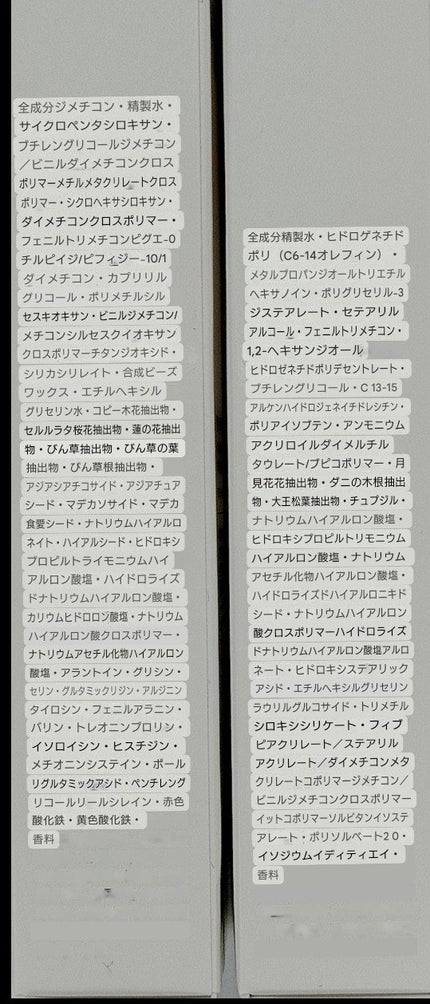 全成分ジメチコン・精製水・
サイクロペンタシロキサン・
プチレングリコールジメチコン
／ビニルダイメチコンクロス
ポリマーメチルメタクリレートクロス
ポリマー・シクロヘキサシロキサン・
ダイメチコンクロスポリマー・
フェニルトリメチコンピグエ-0
チルピイジ/ピフィジー-10/1
ダイメチコン・カブリリル
グリコール・ポリメチルシル
セスキオキサン・ビニルジメチコン/
メチコンシルセスクイオキサン
クロスポリマーチタンジオキシド・
シリカシリレイト・合成ビーズ
ワックス・エチルヘキシル
グリセリン水・コピー木花抽出物・
セルルラタ桜花抽出物・蓮の花抽出
物・びん草抽出物・びん草の葉
抽出物・びん草根抽出物・
アジアシアチコサイド・アジアチュア
シード・マデカソサイド・マデカ
食愛シード・ナトリウムハイアルロ
ネイト・ハイアルシード・ヒドロキシ
プロピルトライモニウムハイ
アルロン酸塩・ハイドロライズ
ドナトリウムハイアルロン酸塩・
カリウムヒドロロジ酸塩・ナトリウム
ハイアルロン酸クロスポリマー・
ナトリウムアセチル化物ハイアルロン
酸塩・アラントイン・グリシン・
セリン・グルタミックリジン・アルジニン
タイロシン・フェニルアラニン・
バリン・トレオニンプロリン・
イソロイシン・ヒスチジン・
メチオニンシステイン・ポール
リグルタミックアシド・ペンチレング
リコールリールシレイン・赤色
酸化鉄・黄色酸化鉄・
香料
全成分精製水・ヒドロゲネチド
ポリ（C6-14オレフィン）・
メタルプロパンジオールトリエチル
ヘキサノイン・ポリグリセリル-3
ジステアレート・セテアリル
アルコール・フェニルトリメチコン・
1,2-ヘキサンジオール
ヒドロゼネチドポリデセントレート・
プチレングリコール・C 13-15
アルケンハイドロジェネイチドレシチン・
ポリアイソブテン・アンモニウム
アクリロイルダイメルチル
タウレート/プピコポリマー・月
見花花抽出物・ダニの木根抽出
物・大王松葉抽出物・チュブジル・
ナトリウムハイアルロン酸塩・
ヒドロキシプロピルトリモニウム
ハイアルロン酸塩・ナトリウム
アセチル化物ハイアルロン酸塩・
ハイドロライズドハイアルロニキド
シード・ナトリウムハイアルロン
酸クロスポリマーハイドロライズ
ドナトリウムハイアルロン酸塩アルロ
ネート・ヒドロキシステアリック
アシド・エチルヘキシルグリセリン
ラウリルグルコサイド・トリメチル
シロキシシリケート・フィブ
ピアクリレート／ステアリル
アクリレート/ダイメチコンメタ
クリレートコポリマージメチコン／
ビニルジメチコンクロスポリマー
イットコポリマーソルビタンイソステ
アレート・ポリソルベート２０・
イソジウムイディティエイ・
香料